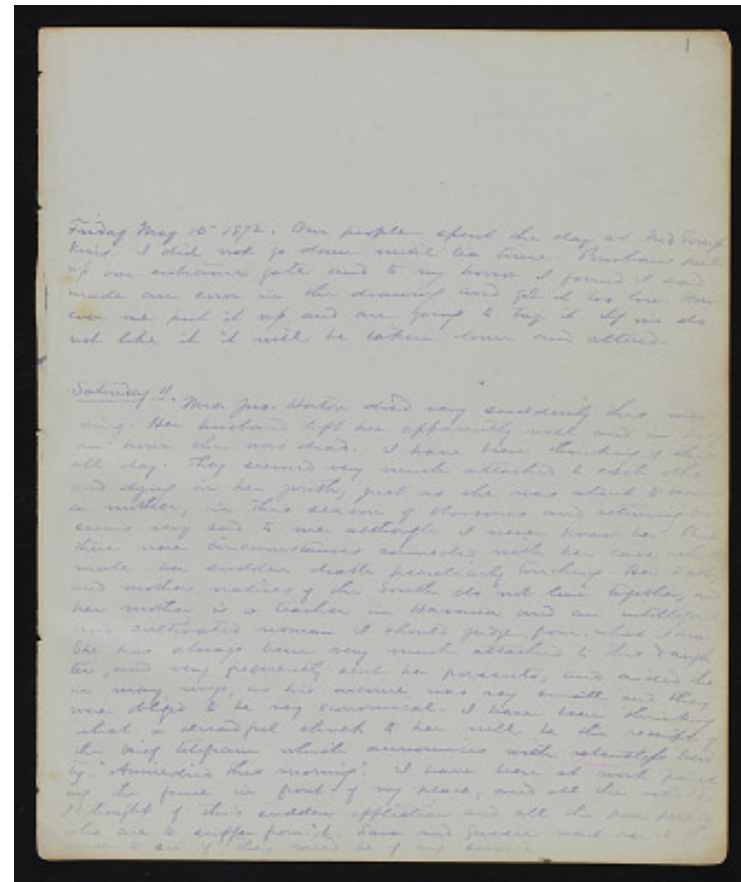 1
Friday May 10 1872. Our people spent the day at
I did not go down until tea time.
up our entrance gate and to my horror I found I had
made an error in the drawing and got it too low.
put it up and are going to try it If we do
not like it it will be taken down and altered.
Saturday 11. Mrs. Jno. Horton died very suddenly this
Her husband left her apparently well and in
an hour she was dead. I have been thinking of this
all day. They seemed very much attached to each
and dying in her youth, just as she was about to become
a mother, in this season of blossoms and returning
seems very sad to me although I never knew her.
there were circumstances connected with her case
made her sudden death peculiarly touching. Her
and mother natives of the South do not live together,
her mother is a teacher in Havana and an
and cultivated woman I should judge from what I
She has always been very much attached to this daugh
ter, and very frequently sent her presents, and assisted
in many ways, as his income was very small and they
were obliged to be very economical. I have been thinking
what a dreadful shock to her will be the receipt of
the brief telegram which announces with relentless
ty "Annie died this morning". I have been at work
ing the fence in front of my place, and all the
I thought of this sudden affliction and all the poor people
who are to suffer from it. Sara and Gussie
to see if they could be of any service